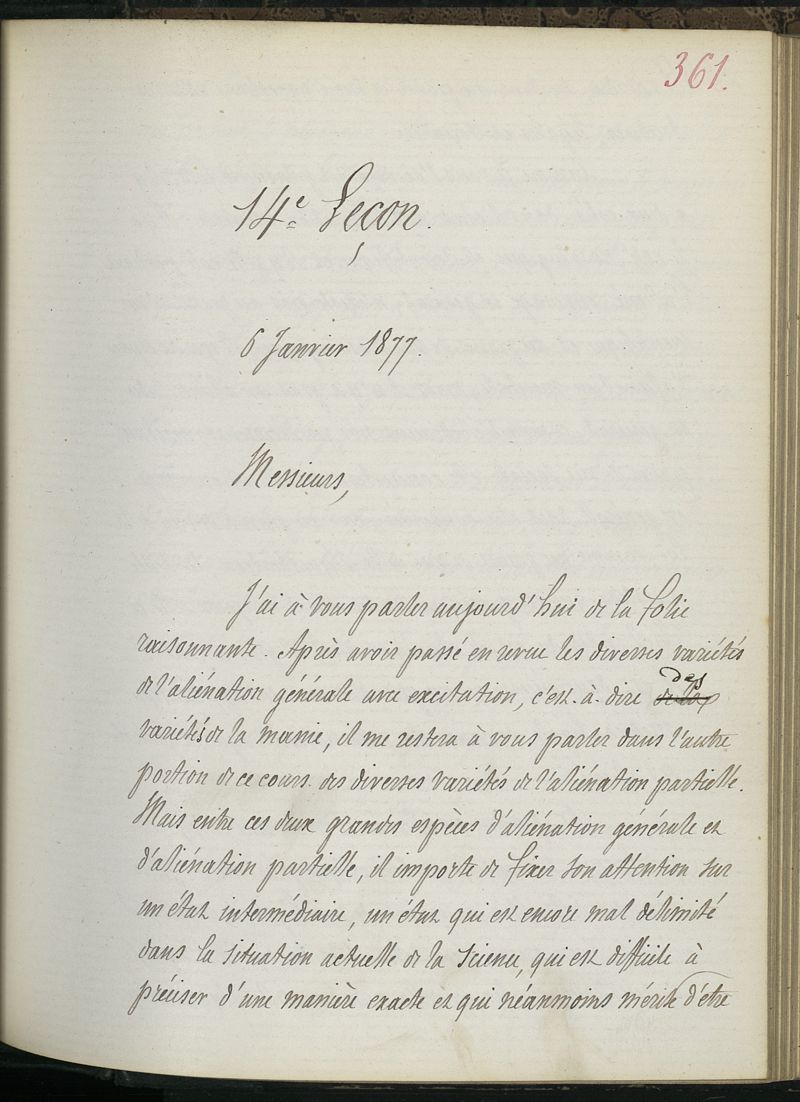 361.
14e Leçon.
6 Janvier 1877.
Messieurs,
J'ai à vous parler aujourd'hui de la folie
raisonnante. Après avoir passé en revue les diverses variétés
de l'aliénation générale avec excitation, c'est-à-dire des
variétés de la manie, il me restera à vous parler dans l'autre
portion de ce cours des diverses variétés de l'aliénation partielle.
Mais entre ces deux grandes espèces d'aliénation générale et
d'aliénation partielle, il importe de fixer son attention sur
un état intermédiaire, un état qui est encore mal délimité
dans la situation actuelle de la science, qui est difficile à
préciser d'une manière exacte et qui néanmoins mérite d'être